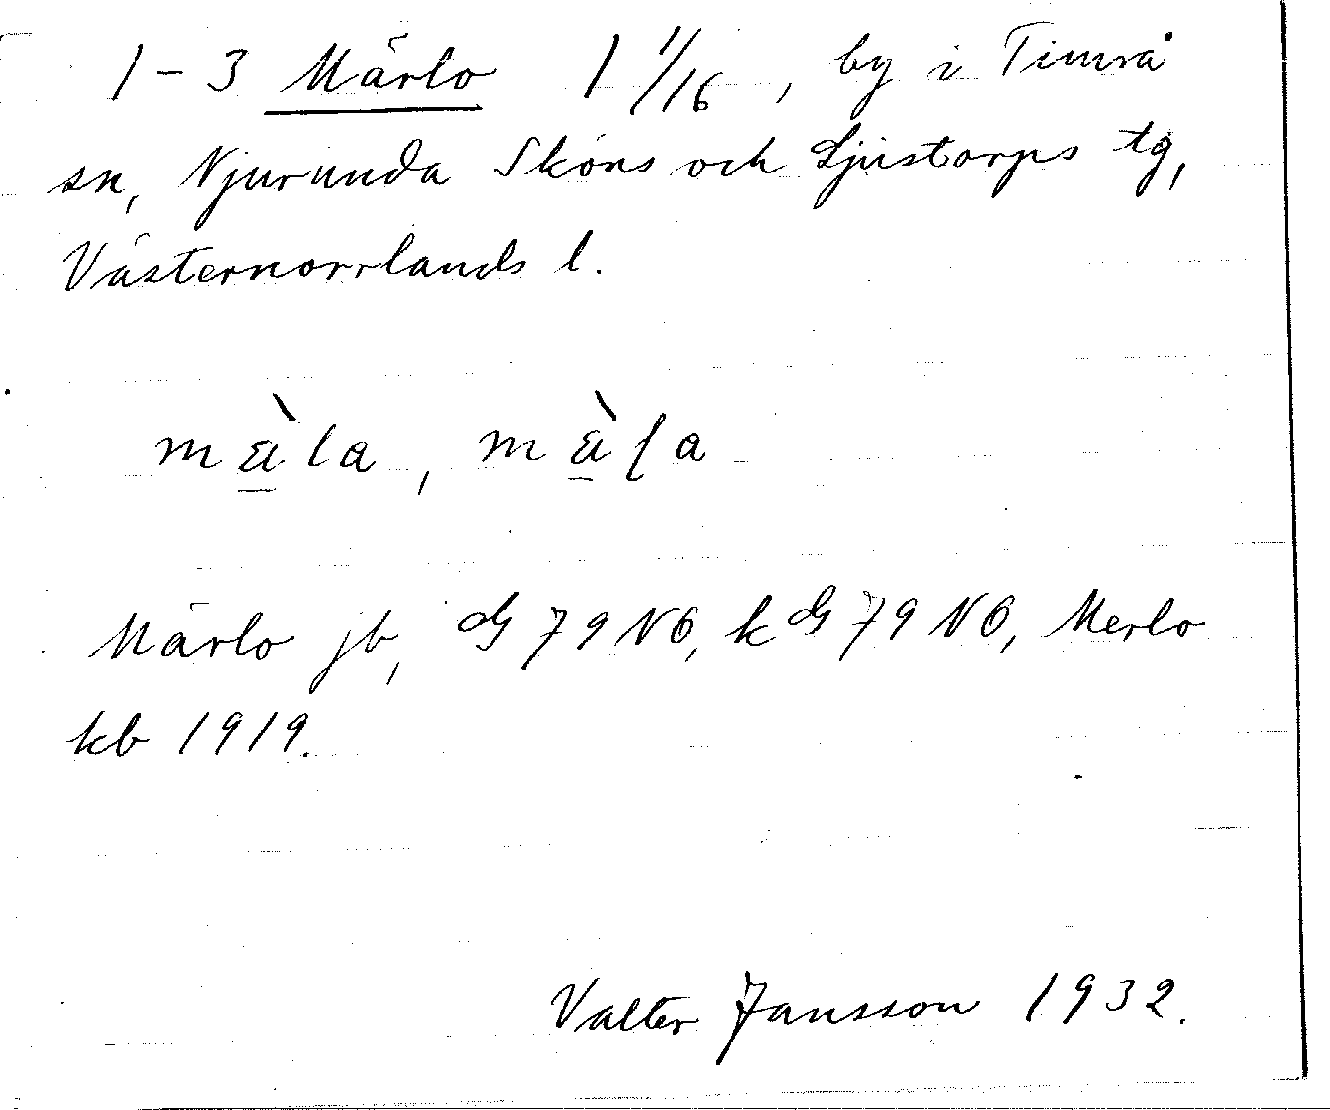 1-3 Märlo 1 1/16, by i Timrå
sn, Njurunda Sköns och Ljustorps tg,
Västernorrlands l.
mὰla, mὰɭa
Märlo jb, dG 79 NO, k dG 79 NO, Merlo
kb 1919.
Valter Jansson 1932.